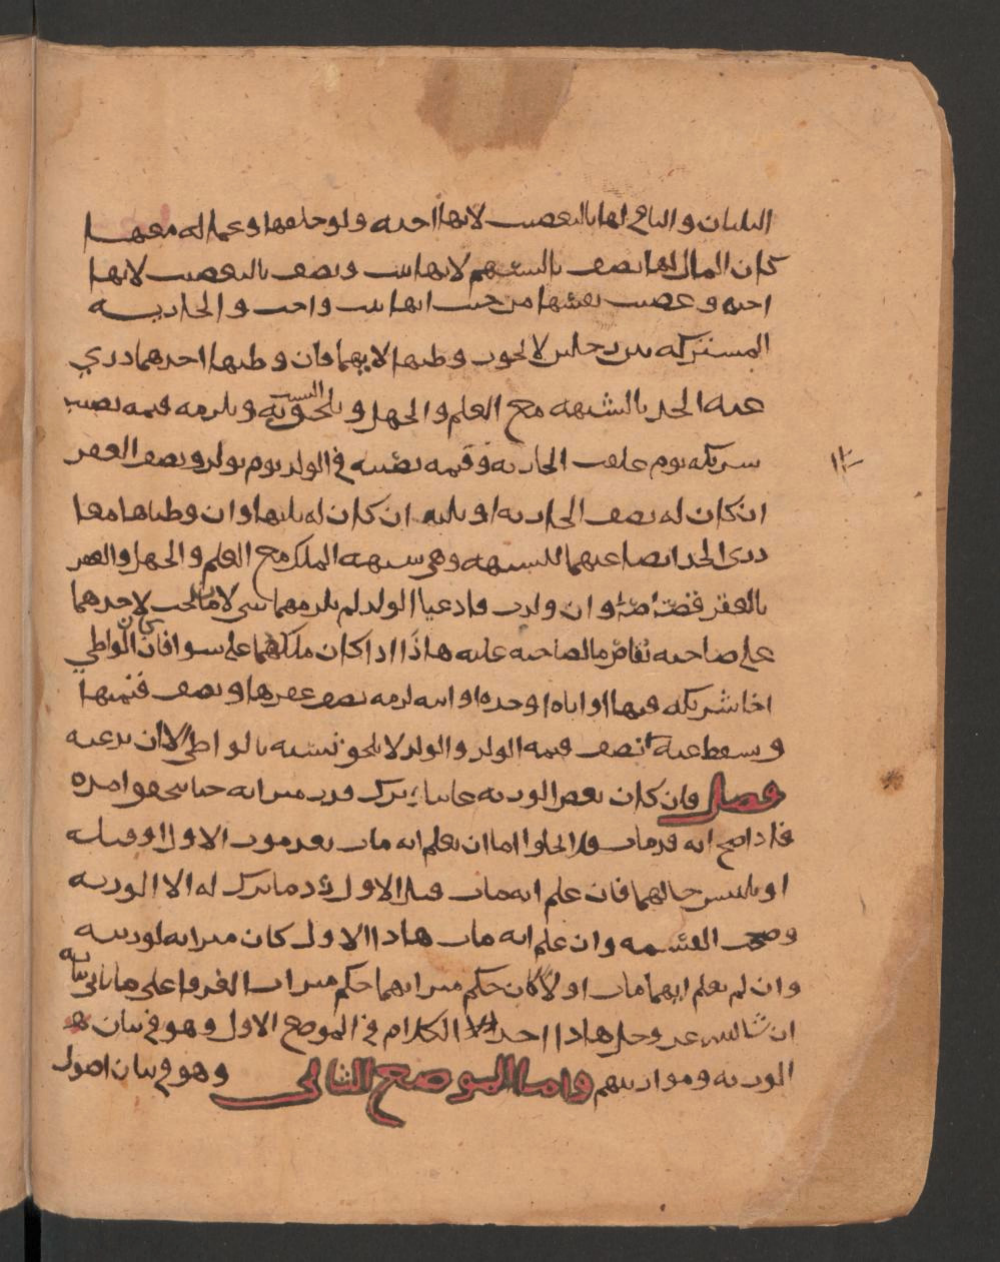 الثلثان والباقي لها بالتعصيب لانها اخته ولو خلفها وعما له معها
كان المال لها نصف بالسهم لانها بنت ونصف بالتعصيب لانها
اخته وعصب نفسها من حيث انها بنت واخت والجارية
المشتركه بين رجلين لا يجوز وطيها لايهما فان وطيها احدهما دري
عنه الحد بالشبهه مع العلم والجهل ويلحق النسب به ويلزمه قيمه نصيب
شريكه يوم علقت الجاريه وقيمه نصيبه في الولد يوم يولد ونصف العقر
ان كان له نصف الجاريه او ثلثه ان كان له ثلثها وان وطياها معا
دري الحد ايضا عنهما للشبهه وهي شبهه الملك مع العلم والجهل والعقر
بالعقر قصاصا وان ولدت فادعيا الولد لم يلزمهما شي لان ما يجب لاحدهما
على صاحبه تقاص بما لصاحبه عليه هاذا اذا كان ملكهما على سوا فان كان الواطي
اخا شريكه فيها او اباه او جده او ابنه لزمه نصف عقرها ونصف قيمتها
ويسقط عنه نصف قيمه الولد والولد لا يلحق نسبه بالواطي الا ان يدعيه
فصل فان كان بعض الورثه غايبا ترك قدر ميراثه حتا يتحقق امره
فاذا صح انه قد مات فلا يخلوا اما ان يعلم انه مات بعد موت الاول او قبله
او يلتبس حالهما فان علم انه مات قبل الاول رد ما ترك له الا الورثه
وصحت القسمه وان علم انه مات هاذا الاول كان ميراثه لورثته
وان لم يعلم ايهما مات اولا كان حكم ميراثهما حكم ميراث الغرقا على ما ياتي بيانه
ان شا الله عز وجل هاذا اخر الكلام في الموضع الاول وهو في بيان
الورثه ومواريثهم واما الموضع الثاني وهو في بيان اصول